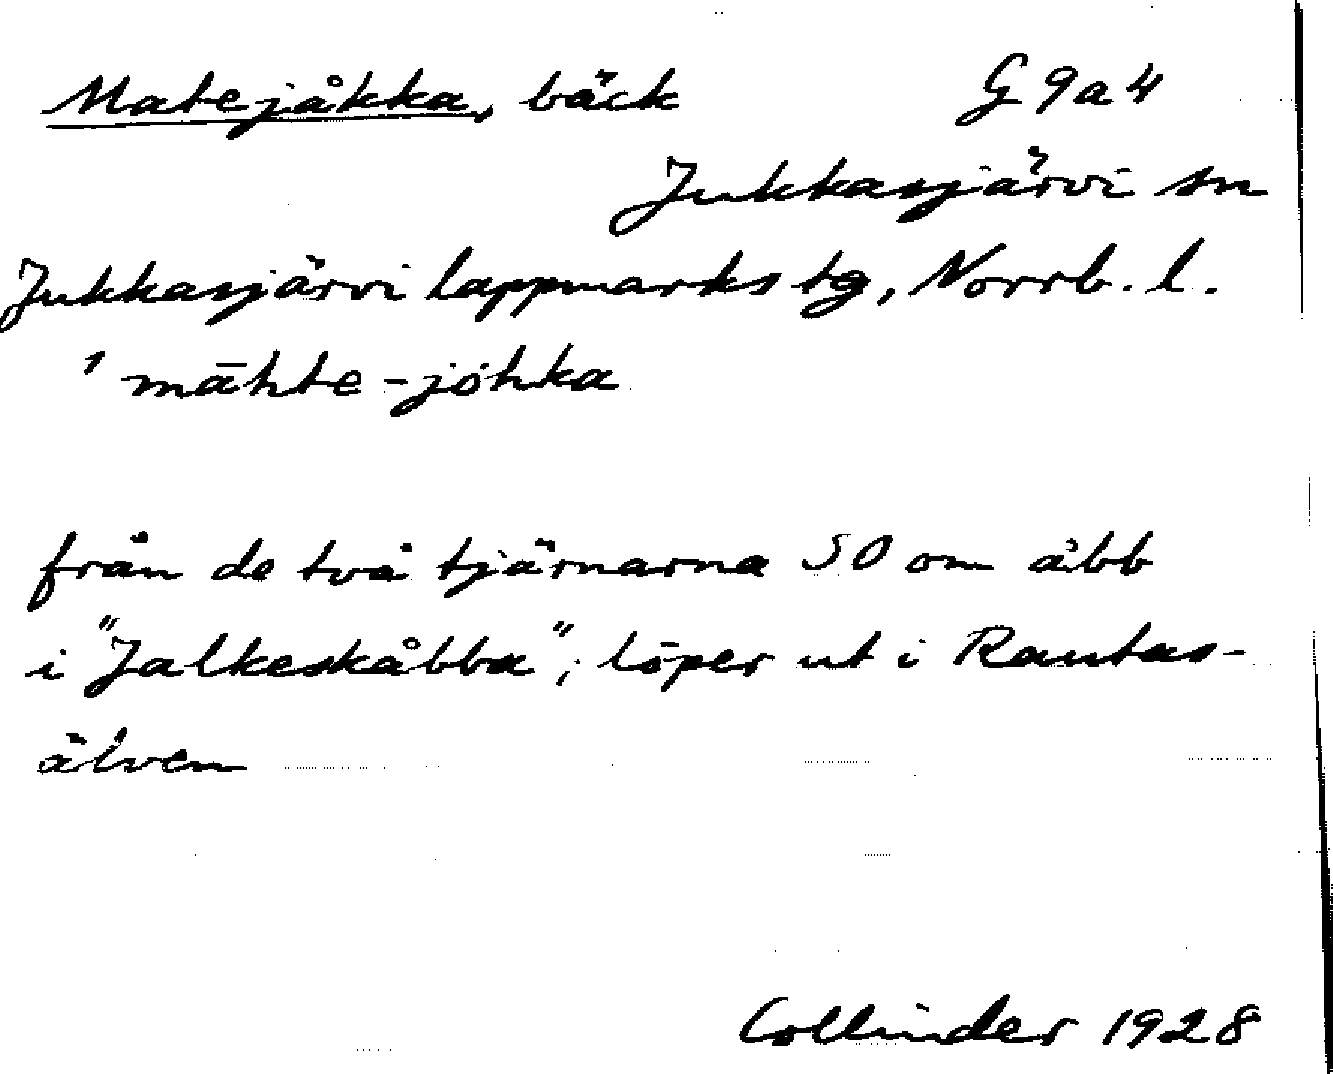 Matejåkka, bäck G 9 a 4
Jukkasjärvi sn
Jukkasjärvi lappmarks tg, Norrb. l.
ˈmāhte-johka
från de två tjärnarna SO om åbb
i "Jalkeskåbba"; löper ut i Rautas-
älven
Collinder 1928